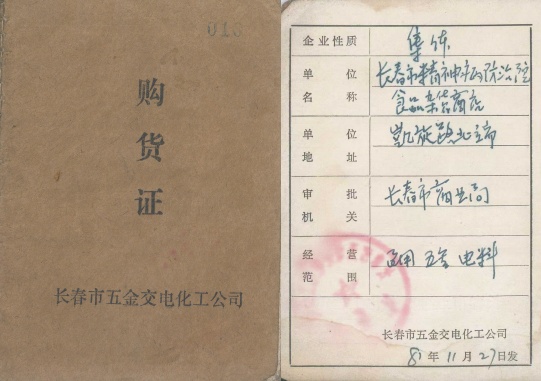 016
购货证
长春市五金交电化工公司
企业性质 集体
单位名称 长春市精神病防治院
食品杂货商店
单位地址 凯旋路北立席
审批机关 长春市商业局
经营范围 百用 五金 电料
长春市五金交电化工公司
8 年 11 月 27 日发